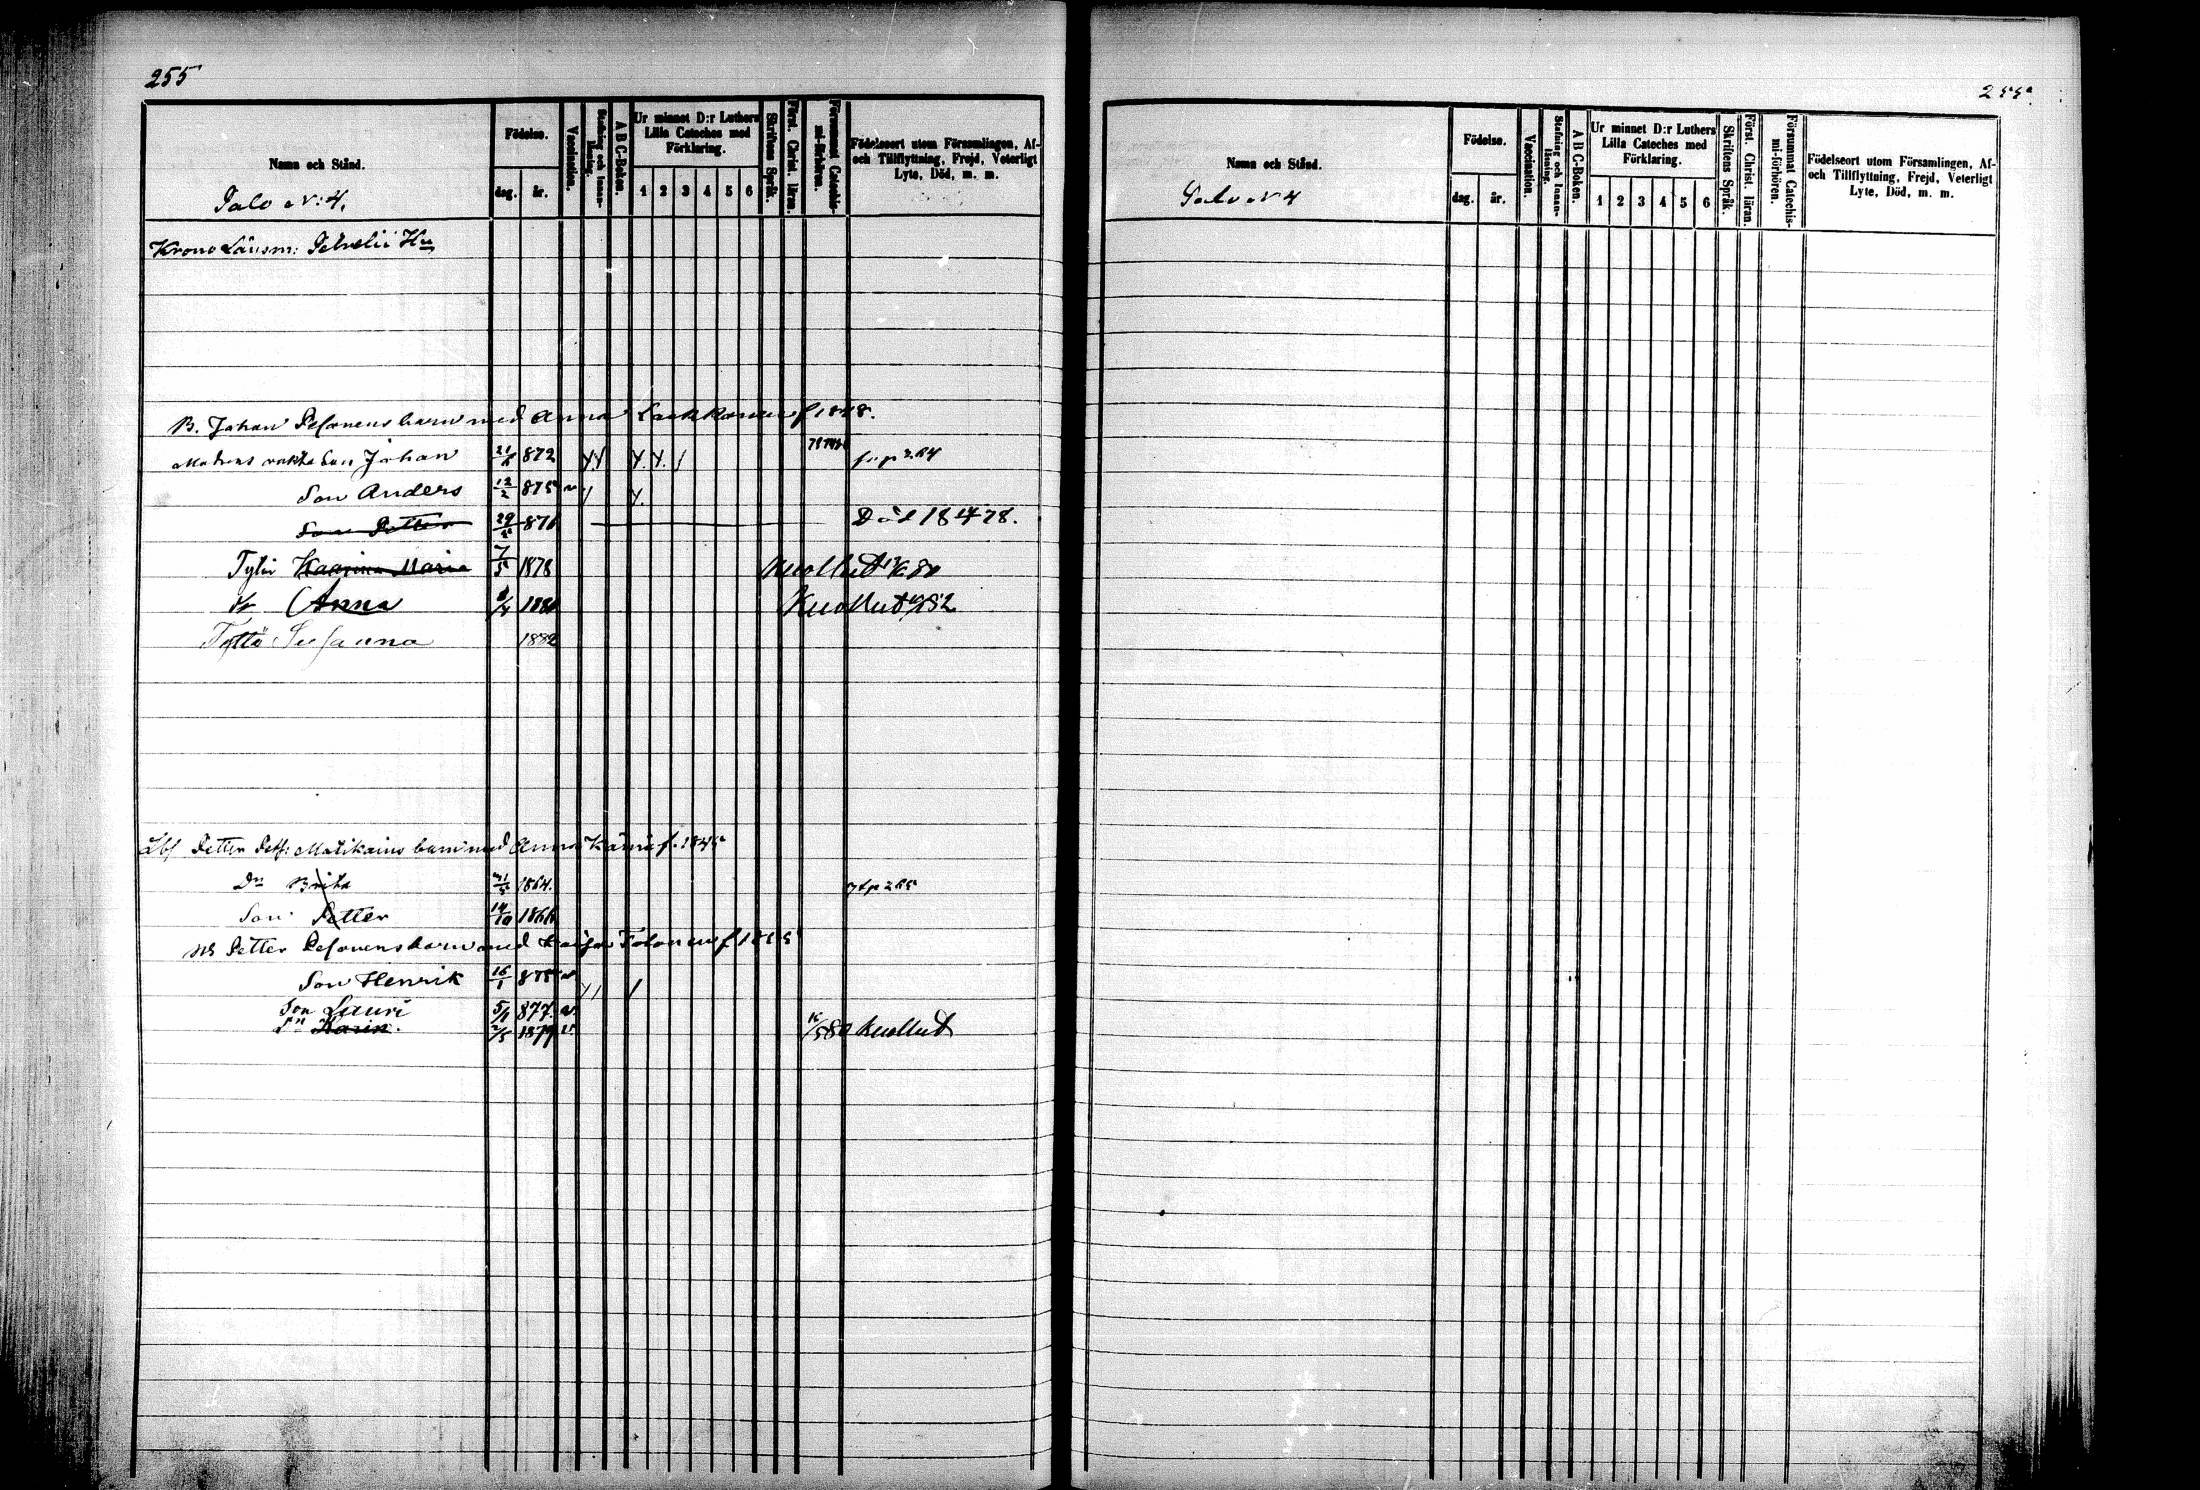 255
Namn och Stånd.
Födelse.
dag. år.
Vaccination.
Stafning och Innanläsning.
A B C-Boken.
Ur minnet D:r Luthers Lilla Cateches med Förklaring.
1 2 3 4 5 6
Skriftens Språk.
Först. Christ. läran.
Försummat Catechismi-förhören.
Födelseort utom Församlingen, Af- och Tillflyttning, Frejd, Veterligt Lyte, Död, m. m.
Talo N:4.
Krono Länsm:
B. Johan Pesonens barn med Anna Laakkonen f 1848.
Son Johan 872
Son Anders 12/2 875 v
Son Petter 29 876 Död 18 4 78.
Tytär Kaarina Maria 7/5 1878 Kuollut 80
Anna 1880 Kuollut 82
Tyttö Susanna 1882
Petter Matikains barn med Anna f. 1845
Dr Brita 31/5 1864.
Son Petter 14/10 1866
Petter Pesonens barn med Kaisa Tolonen f 1855
Son Henrik 16/1 875 v
Son Lauri 5/1 877. v
Dr Karin. 2/5 1879 v 16/5 80 Kuollut
255.
Namn och Stånd.
Födelse.
dag. år.
Vaccination.
Stafning och Innanläsning.
A B C-Boken.
Ur minnet D:r Luthers Lilla Cateches med Förklaring.
1 2 3 4 5 6
Skriftens Språk.
Först. Christ. läran.
Försummat Catechismi-förhören.
Födelseort utom Församlingen, Af- och Tillflyttning, Frejd, Veterligt Lyte, Död, m. m.
Talo N 4